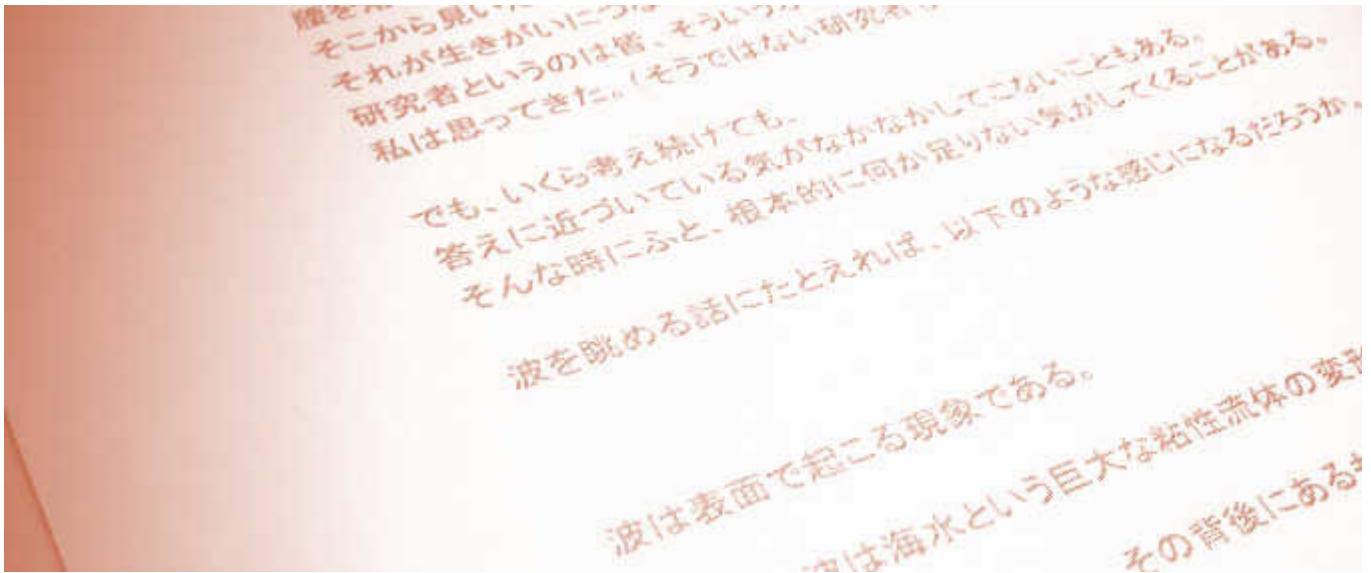 そこから見いだ
それが生きがいにつな
研究者というのは皆、そういうが
私は思ってきた。(そうではない研究者
でも、いくら考え続けても、
答えに近づいている気がなかなかしてこないこともある。
そんな時にふと、根本的に何か足りない気がしてくることがある。
波を眺める話にたとえれば、以下のような感じになるだろうか。
波は表面で起こる現象である。
波は海水という巨大な粘性流体の変形
その背後にある